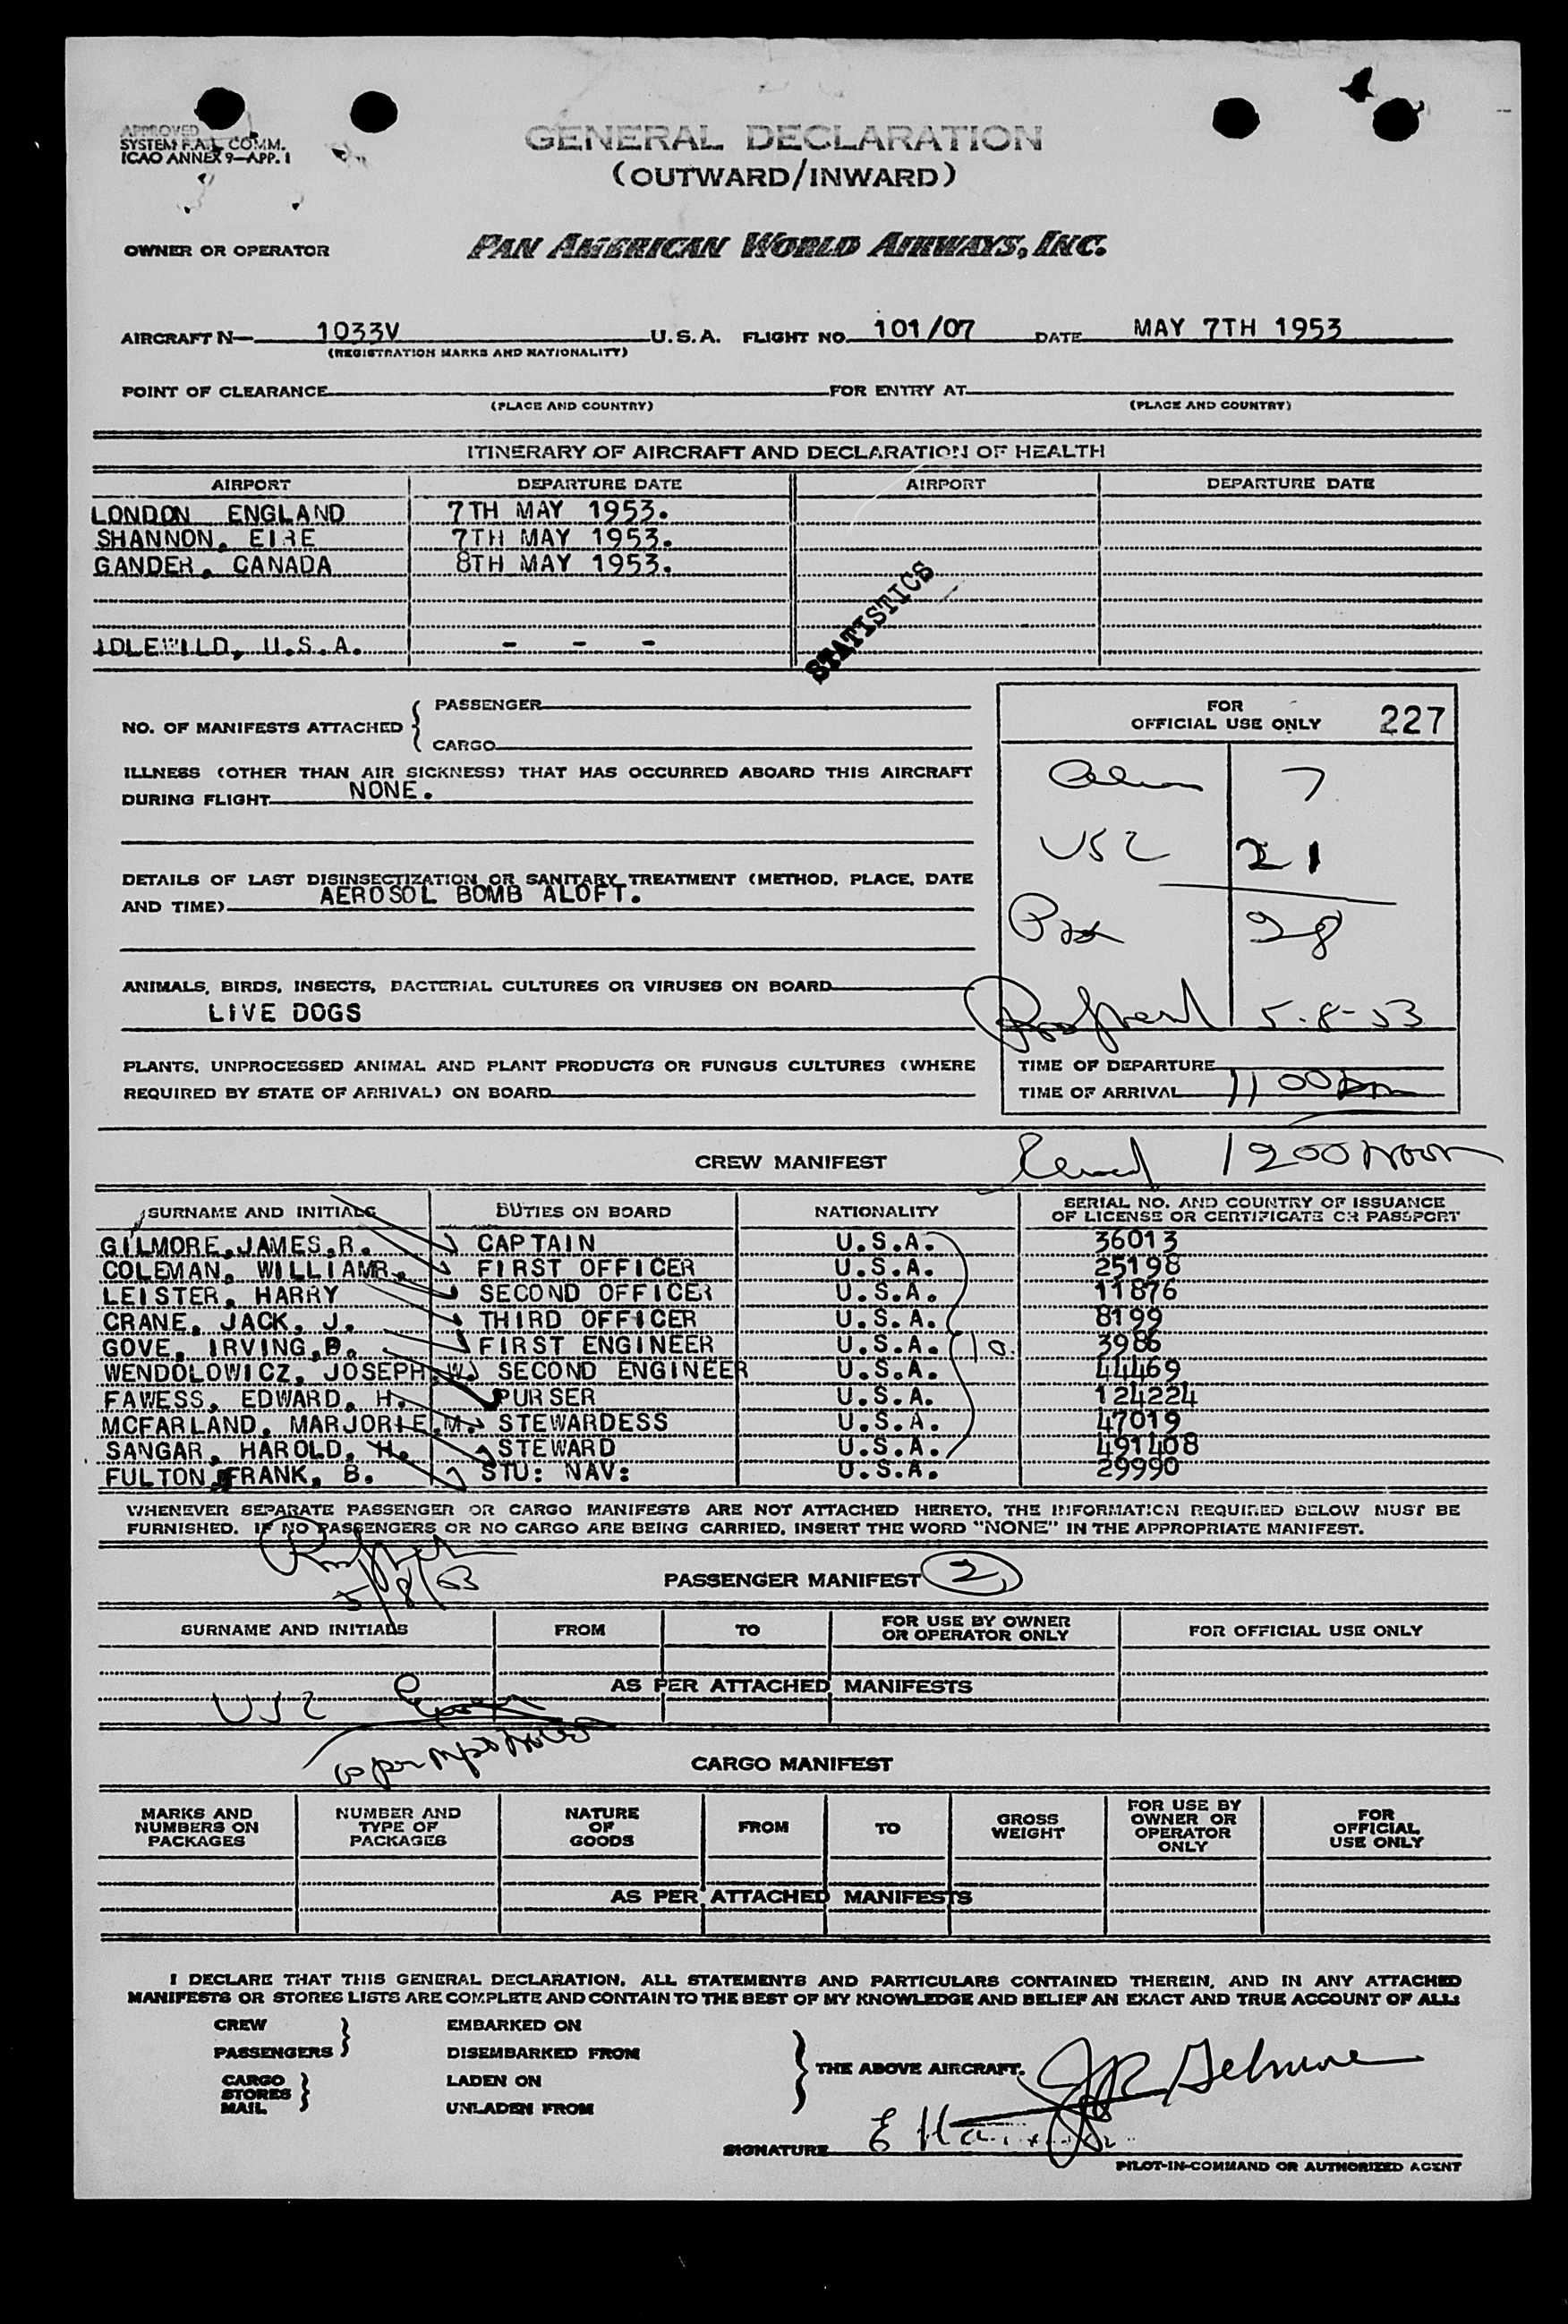 APPROVED
SYSTEM F.A.L. COMM.
ICAO ANNEX 9—APP. 1
GENERAL DECLARATION
(OUTWARD/INWARD)
OWNER OR OPERATOR PAN AMERICAN WORLD AIRWAYS, INC.
AIRCRAFT N— 1033V U.S.A. FLIGHT NO. 101/07 DATE MAY 7TH 1953
(REGISTRATION MARKS AND NATIONALITY)
POINT OF CLEARANCE FOR ENTRY AT
(PLACE AND COUNTRY) (PLACE AND COUNTRY)
ITINERARY OF AIRCRAFT AND DECLARATION OF HEALTH
AIRPORT DEPARTURE DATE AIRPORT DEPARTURE DATE
LONDON ENGLAND 7TH MAY 1953.
SHANNON, EIRE 7TH MAY 1953.
GANDER, CANADA 8TH MAY 1953.
STATISTICS
IDLEWILD, U.S.A. - - -
NO. OF MANIFESTS ATTACHED { PASSENGER
CARGO
FOR
OFFICIAL USE ONLY 227
ILLNESS (OTHER THAN AIR SICKNESS) THAT HAS OCCURRED ABOARD THIS AIRCRAFT
DURING FLIGHT NONE.
7
USC 21
DETAILS OF LAST DISINSECTIZATION OR SANITARY TREATMENT (METHOD, PLACE, DATE
AND TIME) AEROSOL BOMB ALOFT.
Pax 28
ANIMALS, BIRDS, INSECTS, BACTERIAL CULTURES OR VIRUSES ON BOARD
LIVE DOGS
5-8-53
PLANTS, UNPROCESSED ANIMAL AND PLANT PRODUCTS OR FUNGUS CULTURES (WHERE
REQUIRED BY STATE OF ARRIVAL) ON BOARD
TIME OF DEPARTURE
TIME OF ARRIVAL 11 00
CREW MANIFEST
1200 Noon
SURNAME AND INITIALS DUTIES ON BOARD NATIONALITY SERIAL NO. AND COUNTRY OF ISSUANCE
OF LICENSE OR CERTIFICATE OR PASSPORT
GILMORE, JAMES, R. CAPTAIN U.S.A. 36013
COLEMAN, WILLIAMR. FIRST OFFICER U.S.A. 25198
LEISTER, HARRY SECOND OFFICER U.S.A. 11876
CRANE, JACK, J. THIRD OFFICER U.S.A. 8199
GOVE, IRVING,B. FIRST ENGINEER U.S.A. 10 3986
WENDOLOWICZ, JOSEPH.W. SECOND ENGINEER U.S.A. 44469
FAWESS, EDWARD, H. PURSER U.S.A. 124224
MCFARLAND, MARJORIE.M. STEWARDESS U.S.A. 47019
SANGAR, HAROLD, H. STEWARD U.S.A. 491408
FULTON, FRANK, B. STU: NAV: U.S.A. 29990
WHENEVER SEPARATE PASSENGER OR CARGO MANIFESTS ARE NOT ATTACHED HERETO, THE INFORMATION REQUIRED BELOW MUST BE
FURNISHED. IF NO PASSENGERS OR NO CARGO ARE BEING CARRIED, INSERT THE WORD "NONE" IN THE APPROPRIATE MANIFEST.
PASSENGER MANIFEST 2
5/8/53
SURNAME AND INITIALS FROM TO FOR USE BY OWNER
OR OPERATOR ONLY FOR OFFICIAL USE ONLY
AS PER ATTACHED MANIFESTS
USC
CARGO MANIFEST
MARKS AND
NUMBERS ON
PACKAGES
NUMBER AND
TYPE OF
PACKAGES
NATURE
OF
GOODS
FROM
TO
GROSS
WEIGHT
FOR USE BY
OWNER OR
OPERATOR
ONLY
FOR
OFFICIAL
USE ONLY
AS PER ATTACHED MANIFESTS
I DECLARE THAT THIS GENERAL DECLARATION, ALL STATEMENTS AND PARTICULARS CONTAINED THEREIN, AND IN ANY ATTACHED
MANIFESTS OR STORES LISTS ARE COMPLETE AND CONTAIN TO THE BEST OF MY KNOWLEDGE AND BELIEF AN EXACT AND TRUE ACCOUNT OF ALL:
CREW EMBARKED ON
PASSENGERS DISEMBARKED FROM
THE ABOVE AIRCRAFT. JR Gilmore
CARGO LADEN ON
STORES
MAIL UNLADEN FROM
SIGNATURE
PILOT-IN-COMMAND OR AUTHORIZED AGENT